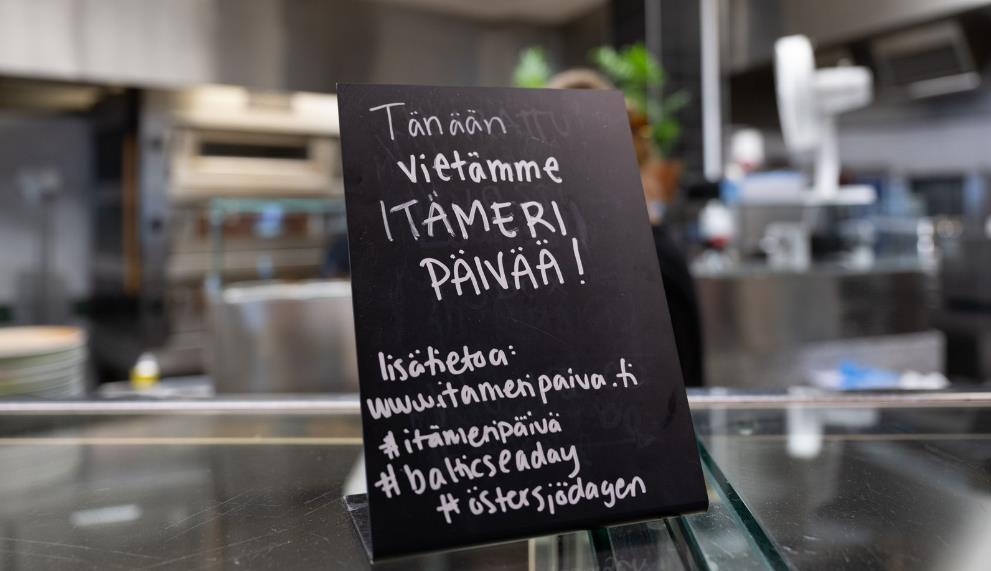 Tänään
vietämme
ITÄMERI
PÄIVÄÄ!
lisätietoa:
www.itameripaiva.fi
#itämeripäivä
#balticseaday
#östersjödagen